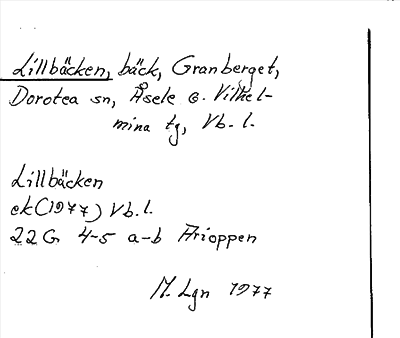 Lillbäcken, bäck, Granberget,
Dorotea sn, Åsele o. Vilhel-
mina tg, Vb. l.
Lillbäcken
ek(1977) Vb. l.
22G 4-5 a-b Arioppen
M. Lgn 1977